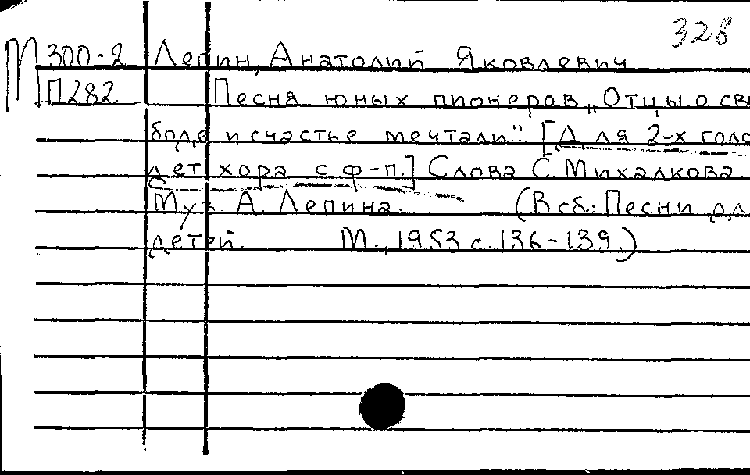 328
М 300-2 Лепин, Анатолий Яковлевич
П282 Песня юных пионеров „Отцы о сво
боде и счастье мечтали" [Для 2-х голос
дет хора с ф-п.] Слова С. Михалкова
Муз А. Лепина. (В сб.: Песни для
детей. М., 1953 с. 136-139.)